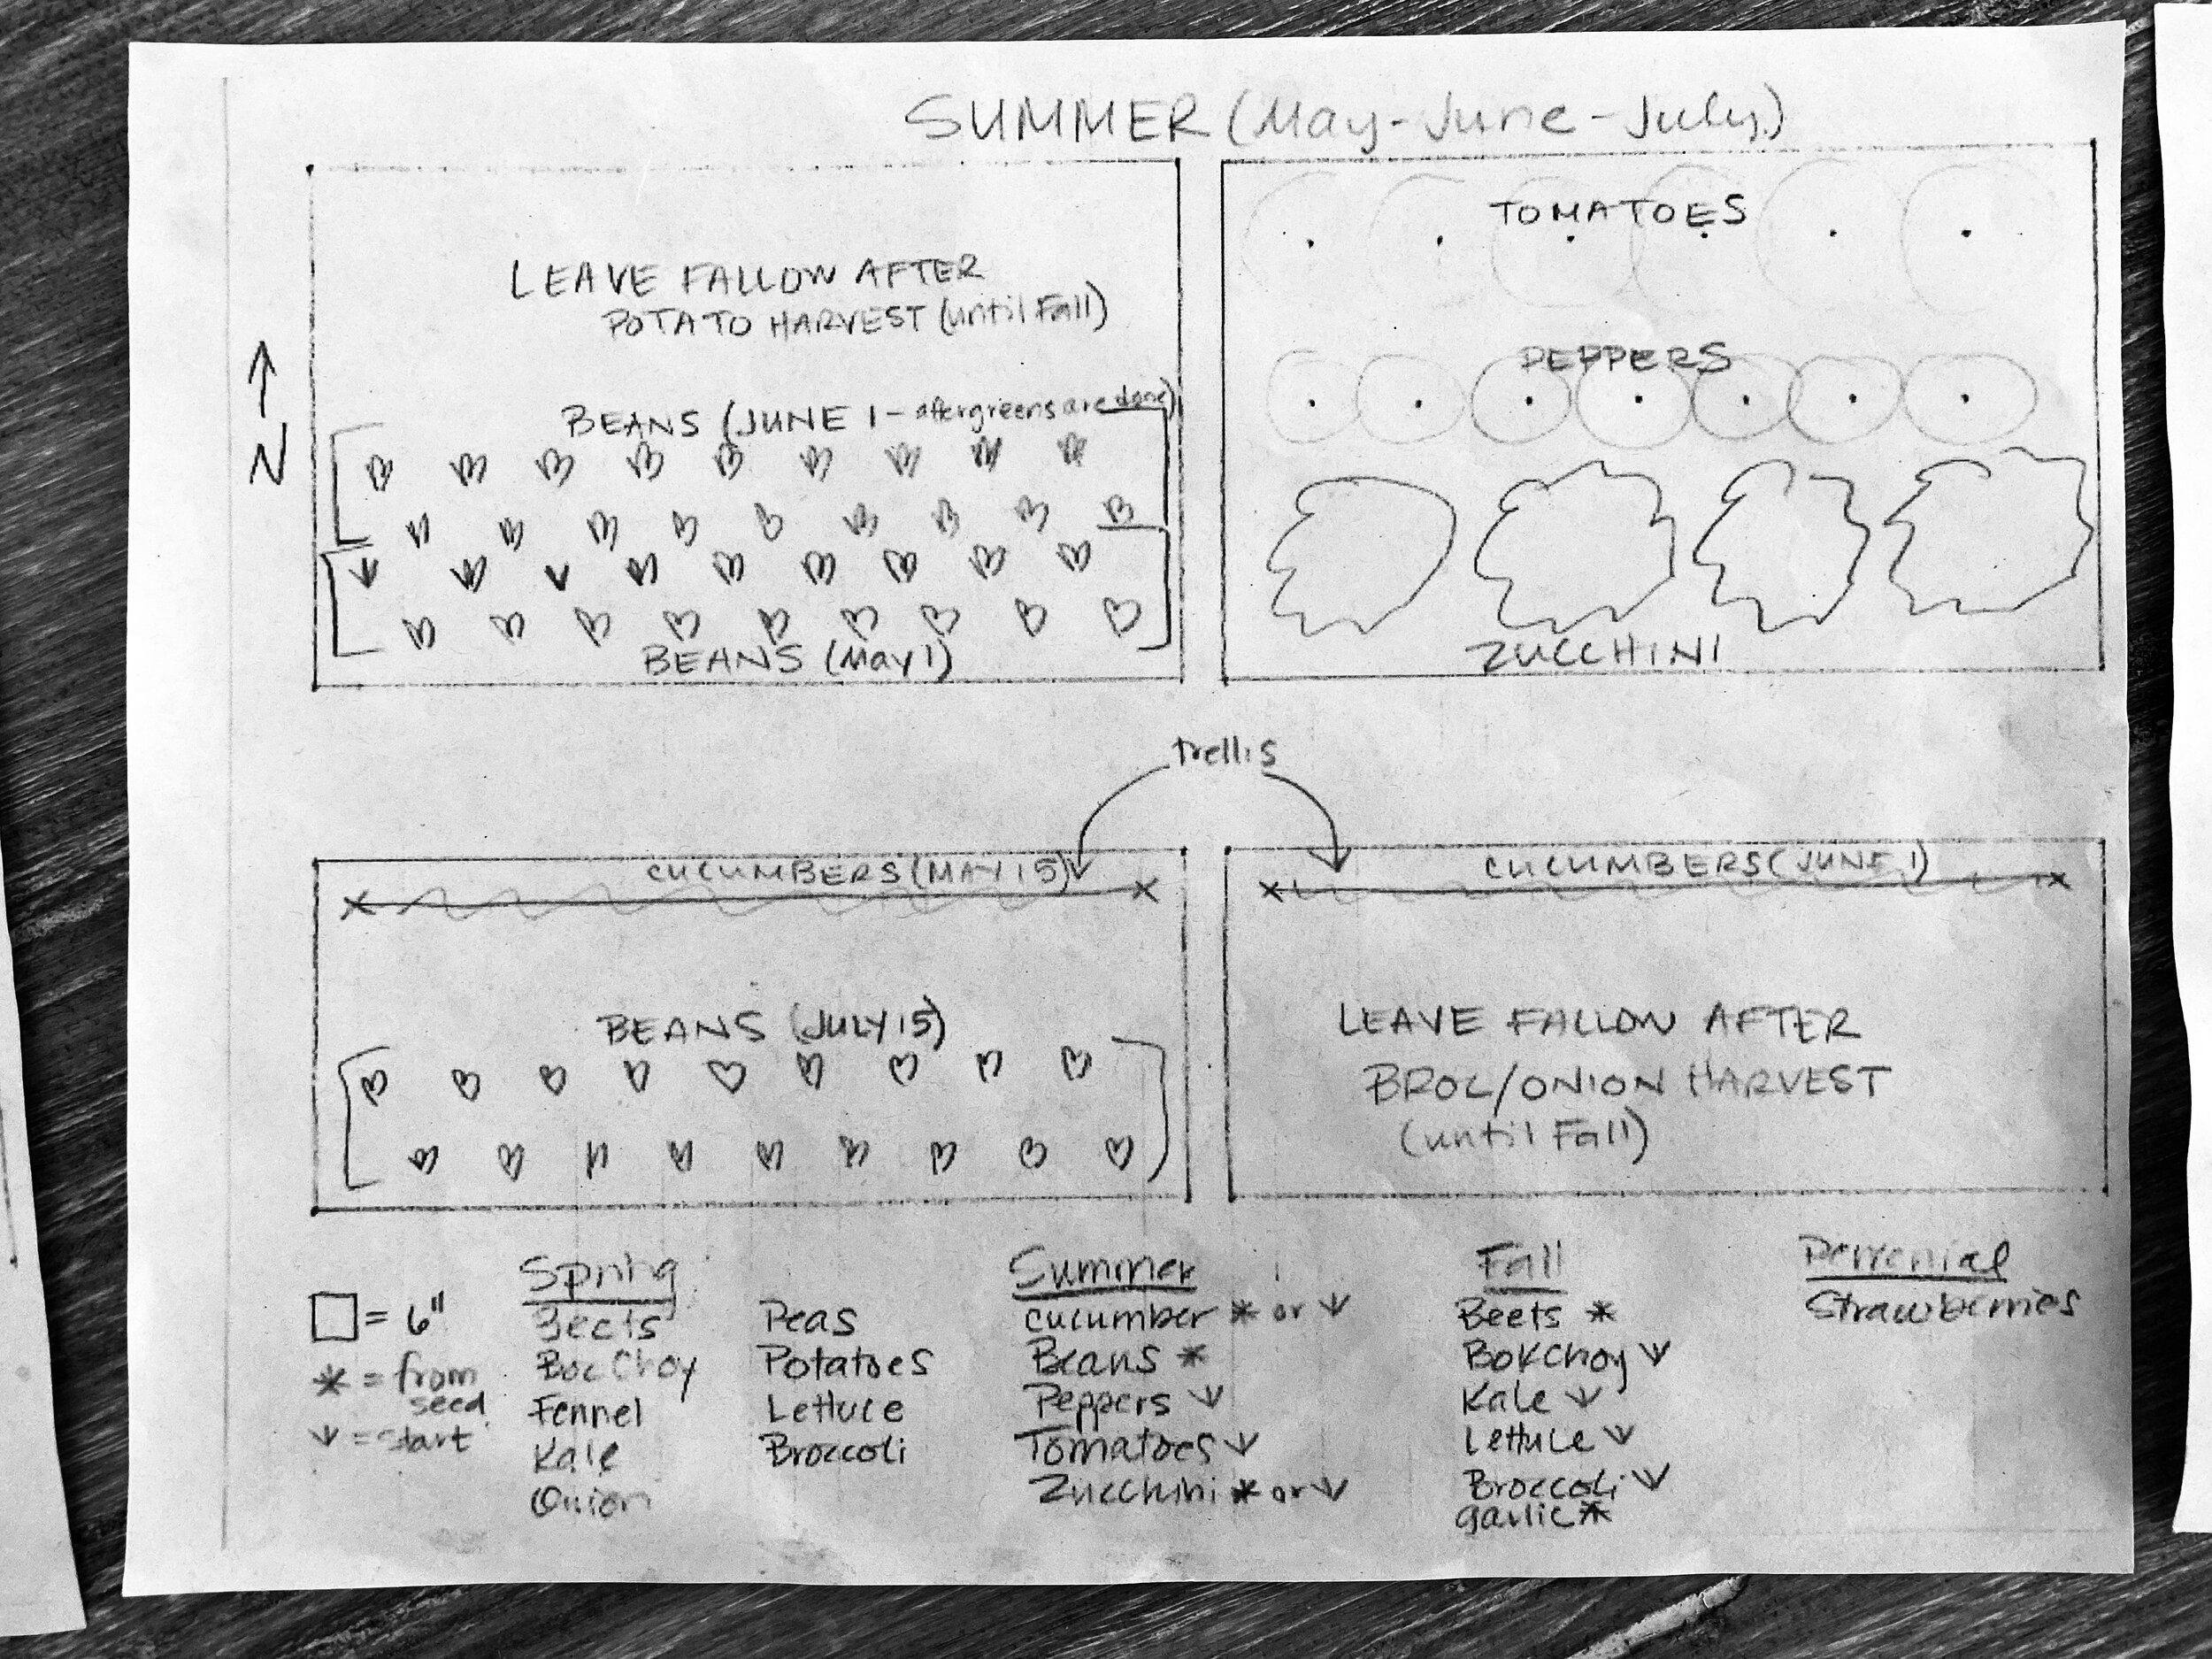 SUMMER (May-June-July)
LEAVE FALLOW AFTER
POTATO HARVEST (until Fall)
BEANS (JUNE 1 - after greens are done)
BEANS (May 1)
N
TOMATOES
PEPPERS
ZUCCHINI
trellis
CUCUMBERS (MAY 15)
BEANS (JULY 15)
CUCUMBERS (JUNE 1)
LEAVE FALLOW AFTER
BROC/ONION HARVEST
(until Fall)
□ = 6"
* = from
seed
↓ = start
Spring
Beets
Boc Choy
Fennel
Kale
Onion
Peas
Potatoes
Lettuce
Broccoli
Summer
cucumber * or ↓
Beans *
Peppers ↓
Tomatoes ↓
Zucchini * or ↓
Fall
Beets *
Bok choy ↓
Kale ↓
Lettuce ↓
Broccoli ↓
garlic *
Perrenial
Strawberries